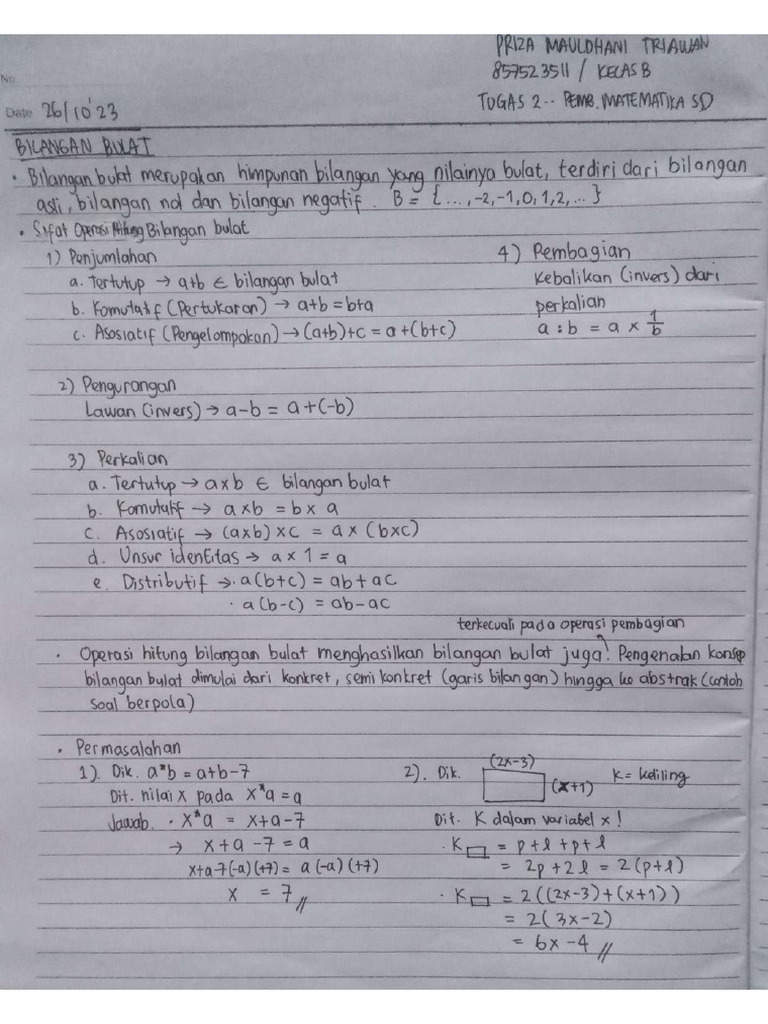 PRIZA MAULDHANI TRIAWAN
No.
857523511 / KELAS B
Date 26/10'23
TUGAS 2.. PEMB. MATEMATIKA SD
BILANGAN BULAT
• Bilangan bulat merupakan himpunan bilangan yang nilainya bulat, terdiri dari bilangan
asli, bilangan nol dan bilangan negatif. B = {..., -2, -1, 0, 1, 2, ... }
• Sifat Operasi Hitung Bilangan bulat
1) Penjumlahan
a. Tertutup → a+b ∈ bilangan bulat
b. Komutatif (Pertukaran) → a+b = b+a
c. Asosiatif (Pengelompokan) → (a+b)+c = a+(b+c)
4) Pembagian
Kebalikan (invers) dari
perkalian
a : b = a × 1/b
2) Pengurangan
Lawan (invers) → a-b = a+(-b)
3) Perkalian
a. Tertutup → axb ∈ bilangan bulat
b. Komutatif → axb = bx a
c. Asosiatif → (axb) xc = a x (bxc)
d. Unsur identitas → a x 1 = a
e. Distributif → · a(b+c) = ab + ac
· a(b-c) = ab-ac
terkecuali pada operasi pembagian
• Operasi hitung bilangan bulat menghasilkan bilangan bulat juga. Pengenalan konsep
bilangan bulat dimulai dari konkret, semi konkret (garis bilangan) hingga ke abstrak (contoh
soal berpola)
• Permasalahan
1). Dik. a*b = a+b-7
Dit. nilai x pada x*a = a
Jawab. · x*a = x+a-7
→ x+a-7 = a
x+a-7(-a)(+7) = a(-a)(+7)
x = 7 //
2). Dik. (2x-3)
(x+1)
K = keliling
Dit. K dalam variabel x !
· K▭ = p+l+p+l
= 2p+2l = 2(p+l)
· K▭ = 2((2x-3)+(x+1))
= 2(3x-2)
= 6x-4 //